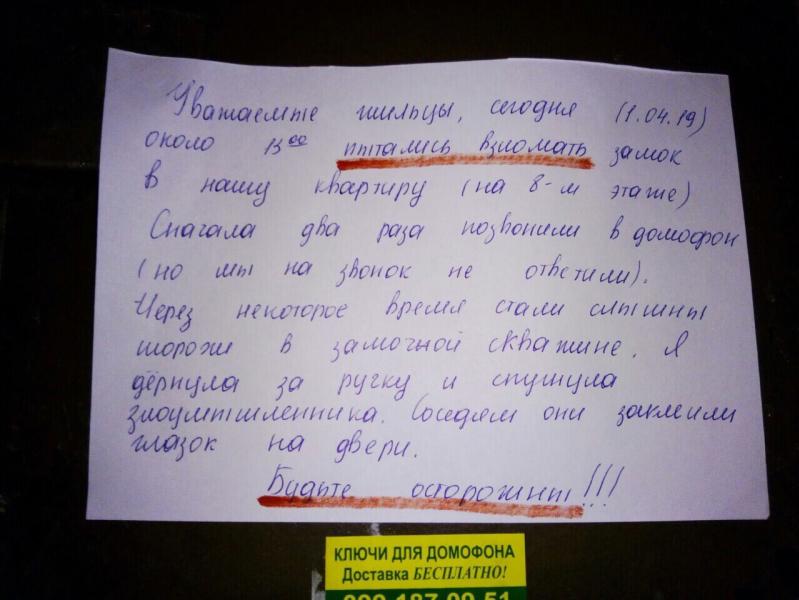 Уважаемые жильцы, сегодня (1.04.19)
около 13⁰⁰ пытались взломать замок
в нашу квартиру (на 8-м этаже)
Сначала два раза позвонили в домофон
(но мы на звонок не ответили).
Через некоторое время стали слышны
шорохи в замочной скважине. Я
дёрнула за ручку и спугнула
злоумышленника. Соседям они заклеили
глазок на двери.
Будьте осторожны!!!
КЛЮЧИ ДЛЯ ДОМОФОНА
Доставка БЕСПЛАТНО!